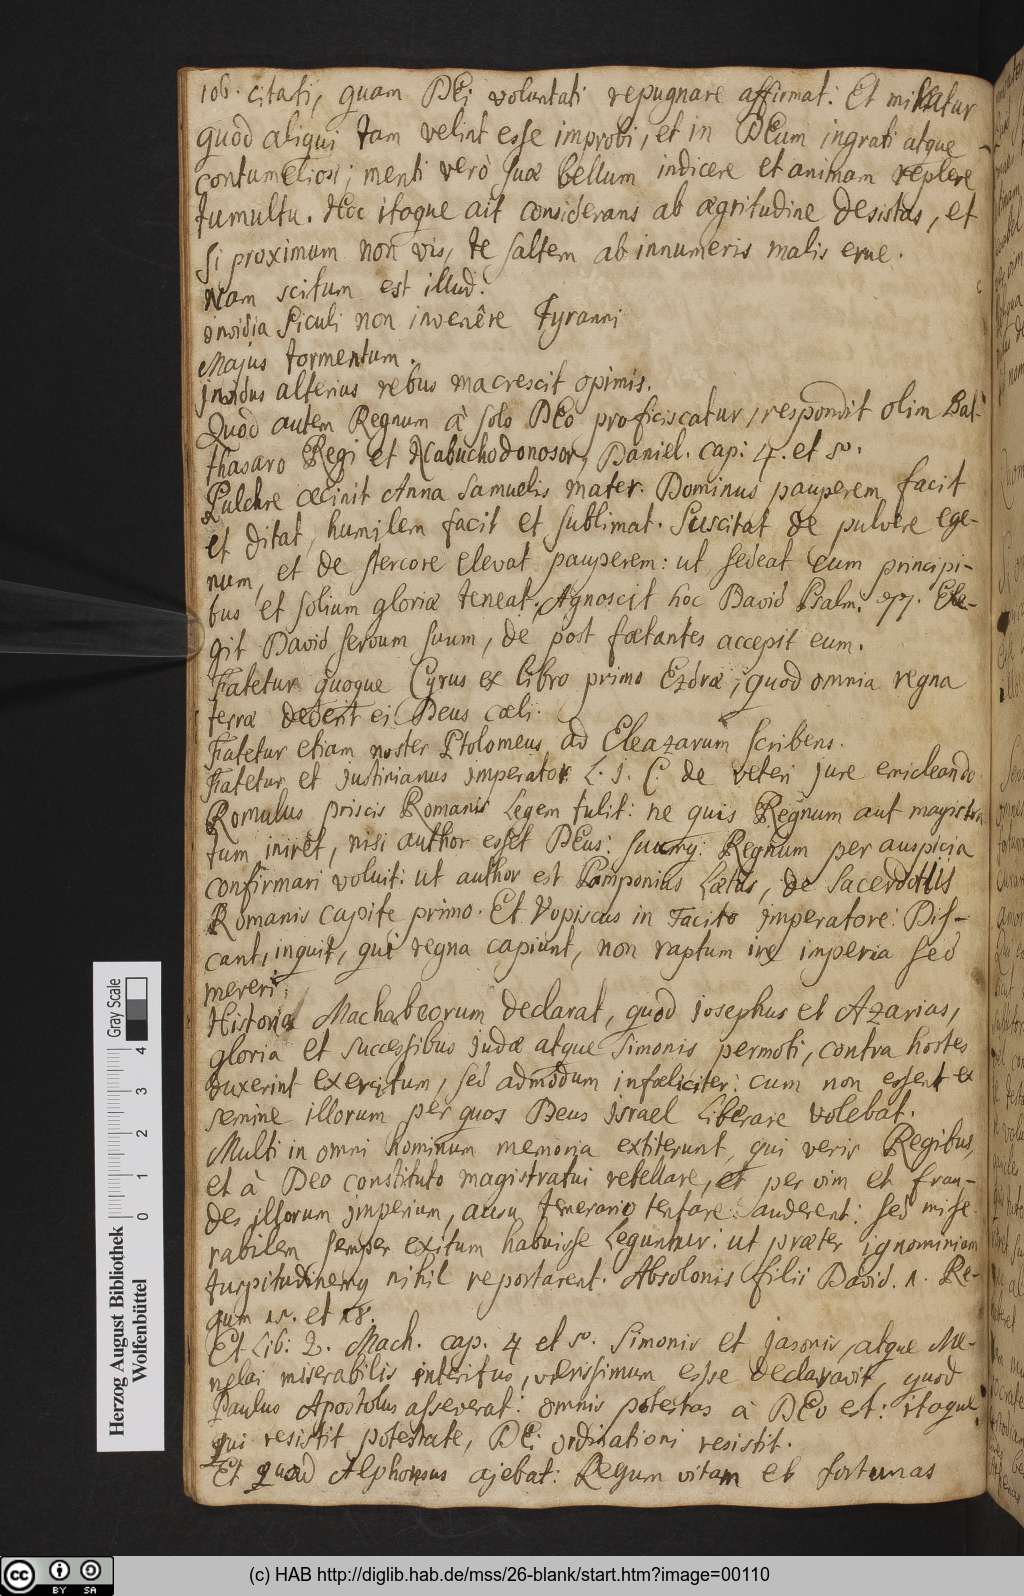 106. citati, quam DEi voluntati repugnare affirmat. Et miratur
quod aliqui tam velint esse improbi, et in DEum ingrati atque
contumeliosi; menti verò suæ bellum indicere et animam replere
tumultu. Hoc itaque ait considerans ab ægritudine desistas, et
si proximum non vis, te saltem ab innumeris malis erue.
Nam scitum est illud.
invidia Siculi non invenêre Tyranni
Majus tormentum.
jnvidus alterius rebus macrescit opimis.
Quod autem Regnum à solo DEo proficiscatur, respondit olim Bal-
thasaro Regi et Nabuchodonosor, Daniel. cap: 4. et 5.
Pulchre cecinit Anna Samuelis mater. Dominus pauperem facit
et ditat, humilem facit et sublimat. Suscitat de pulvere ege-
num, et de stercore elevat pauperem: ut sedeat cum principi-
bus et solium gloriæ teneat. Agnoscit hoc David Psalm. 77. Ele-
git David servum suum, de post fœtantes accepit eum.
Fatetur quoque Cyrus ex libro primo Ezdræ, quod omnia regna
terræ dederit ei Deus cæli.
Fatetur etiam noster Ptolomeus ad Eleazarum scribens.
Fatetur et justinianus jmperator L. 1. C de veteri jure enucleando
Romulus priscis Romanis Legem tulit: ne quis Regnum aut magistra
tum iniret, nisi author esset DEus: suumq; Regnum per auspicia
confirmari voluit: ut author est Pomponius Lætus, de Sacerdotiis
Romanis capite primo. Et Vopiscus in Tacito jmperatore: Dis-
cant, inquit, qui regna capiunt, non raptum ire imperia sed
mereri.
Historia Machabeorum declarat, quod josephus et Azarias,
gloria et successibus judæ atque Simonis permoti, contra hostes
duxerint exercitum, sed admodum infœliciter: cum non essent ex
semine illorum per quos Deus jsrael Liberare volebat.
Multi in omni hominum memoria extiterunt, qui veris Regibus,
et à Deo constituto magistratui rebellare, et per vim et frau-
des jllorum jmperium, ausu temerario tentare auderent: sed mise
rabilem semper exitum habuisse Leguntur: ut præter ignominiam
turpitudinemq; nihil reportarent. Absolonis filii David. 1. Re-
gum 15. et 18.
Et Lib: 2. Mach. cap. 4 et 5. Simonis et jasonis, atque Me-
nelai miserabilis interitus, verissimum esse declaravit, quod
Paulus Apostolus asseverat: omnis potestas à DEo est: itaque
qui resistit potestate, DEi ordinationi resistit.
Et quod Alphonsus ajebat: Regum vitam et fortunas
Herzog August Bibliothek
Wolfenbüttel
0 1 2 3 4
Gray Scale
cc BY SA
(c) HAB http://diglib.hab.de/mss/26-blank/start.htm?image=00110